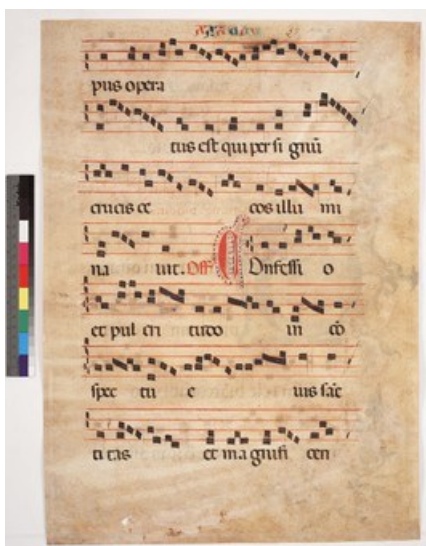 pus opera
tus est qui per si gnū
crucis ce cos illu mi
na uit. Off Cōnfessi o
et pul cri tudo in cō
spec tu e ius sāc
ti tas et ma gnifi cen